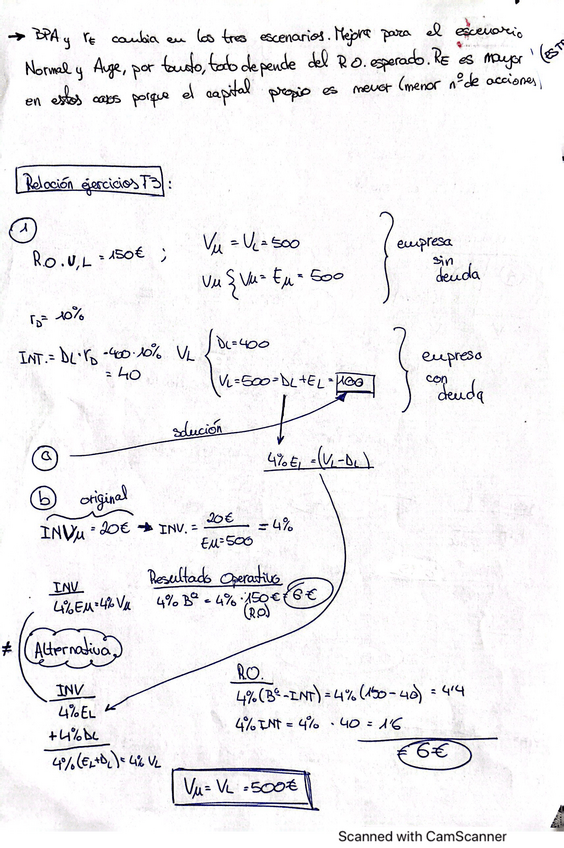 → BPA y rE cambia en los tres escenarios. Mejora para el escenario
Normal y Auge, por tanto, todo depende del R.O. esperado. RE es mayor
en estos casos porque el capital propio es menor (menor nº de acciones)
Relación ejercicios T3:
①
R.O. U,L = 150€ ;
Vμ = VL = 500
Vμ { Vμ = Eμ = 500
empresa
sin
deuda
rD = 10%
INT. = DL · rD = 400 · 10%
= 40
VL
DL = 400
VL = 500 = DL + EL = 100
empresa
con
deuda
solución
ⓐ
4% EL = (VL - DL)
ⓑ original
INVμ = 20€ → INV. = 20€ / Eμ = 500 = 4%
INV
4% Eμ = 4% Vμ
Resultado Operativo
4% Bº = 4% · 150€ = 6€
(RO)
≠ Alternativa
INV
4% EL
+ 4% DL
4% (EL + DL) = 4% VL
R.O.
4% (Bº - INT) = 4% (150 - 40) = 4'4
4% INT = 4% · 40 = 1'6
= 6€
Vμ = VL = 500€
Scanned with CamScanner